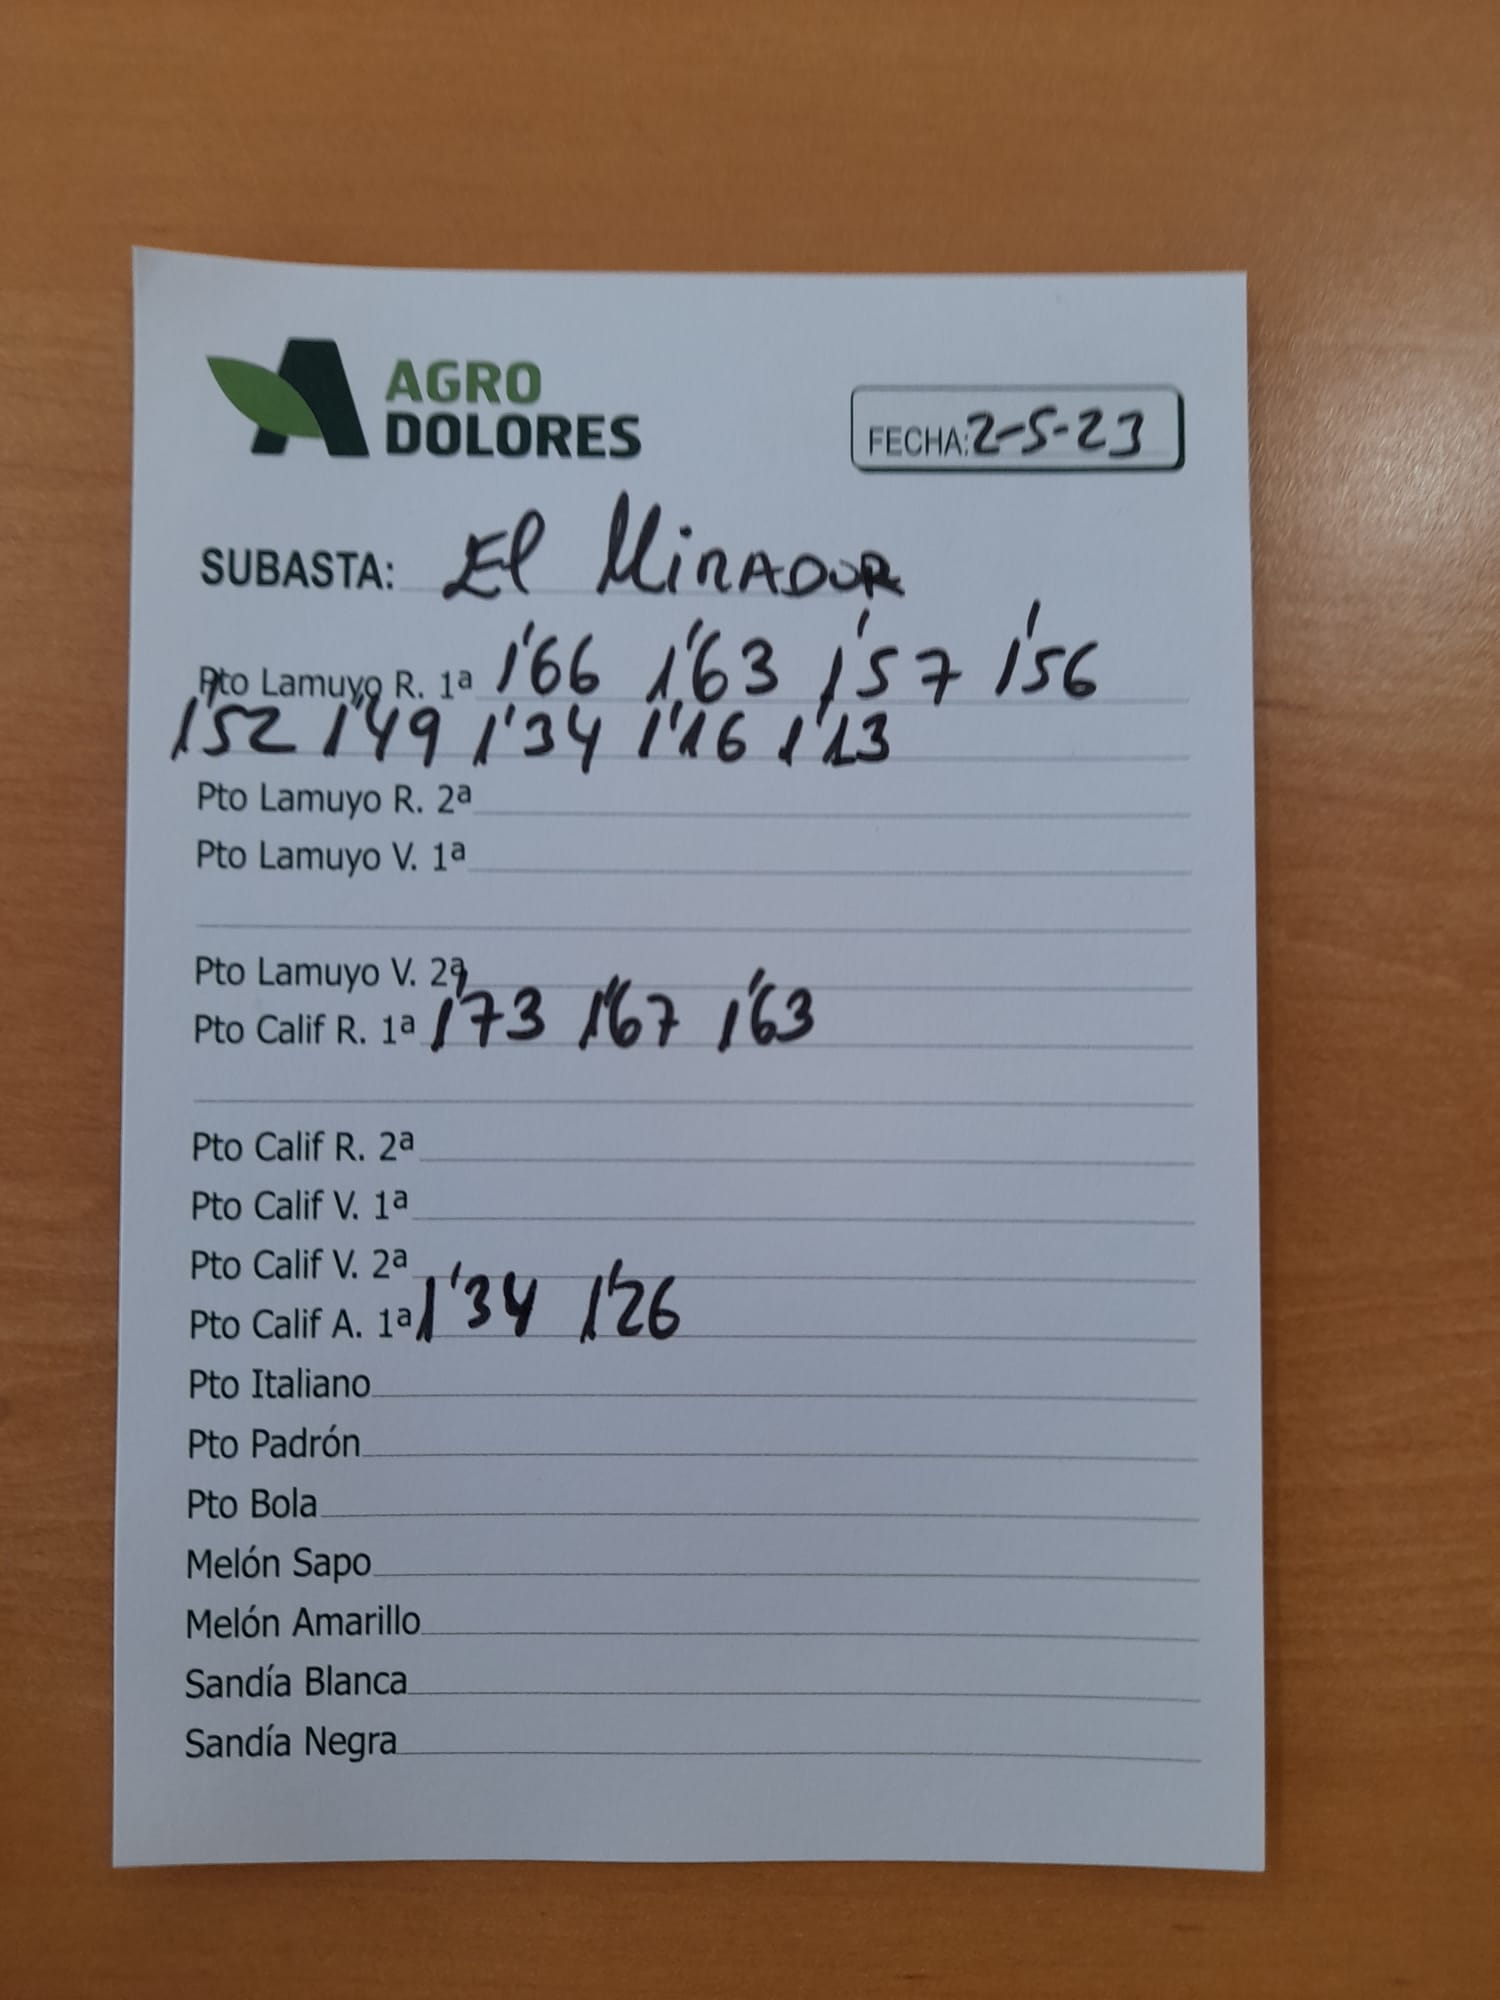 AGRO
DOLORES
FECHA: 2-5-23
SUBASTA: El MiRADOR
Pto Lamuyo R. 1ª 1'66 1'63 1'57 1'56
1'52 1'49 1'34 1'16 1'13
Pto Lamuyo R. 2ª
Pto Lamuyo V. 1ª
Pto Lamuyo V. 2ª
Pto Calif R. 1ª 1'73 1'67 1'63
Pto Calif R. 2ª
Pto Calif V. 1ª
Pto Calif V. 2ª
Pto Calif A. 1ª 1'34 1'26
Pto Italiano
Pto Padrón
Pto Bola
Melón Sapo
Melón Amarillo
Sandía Blanca
Sandía Negra